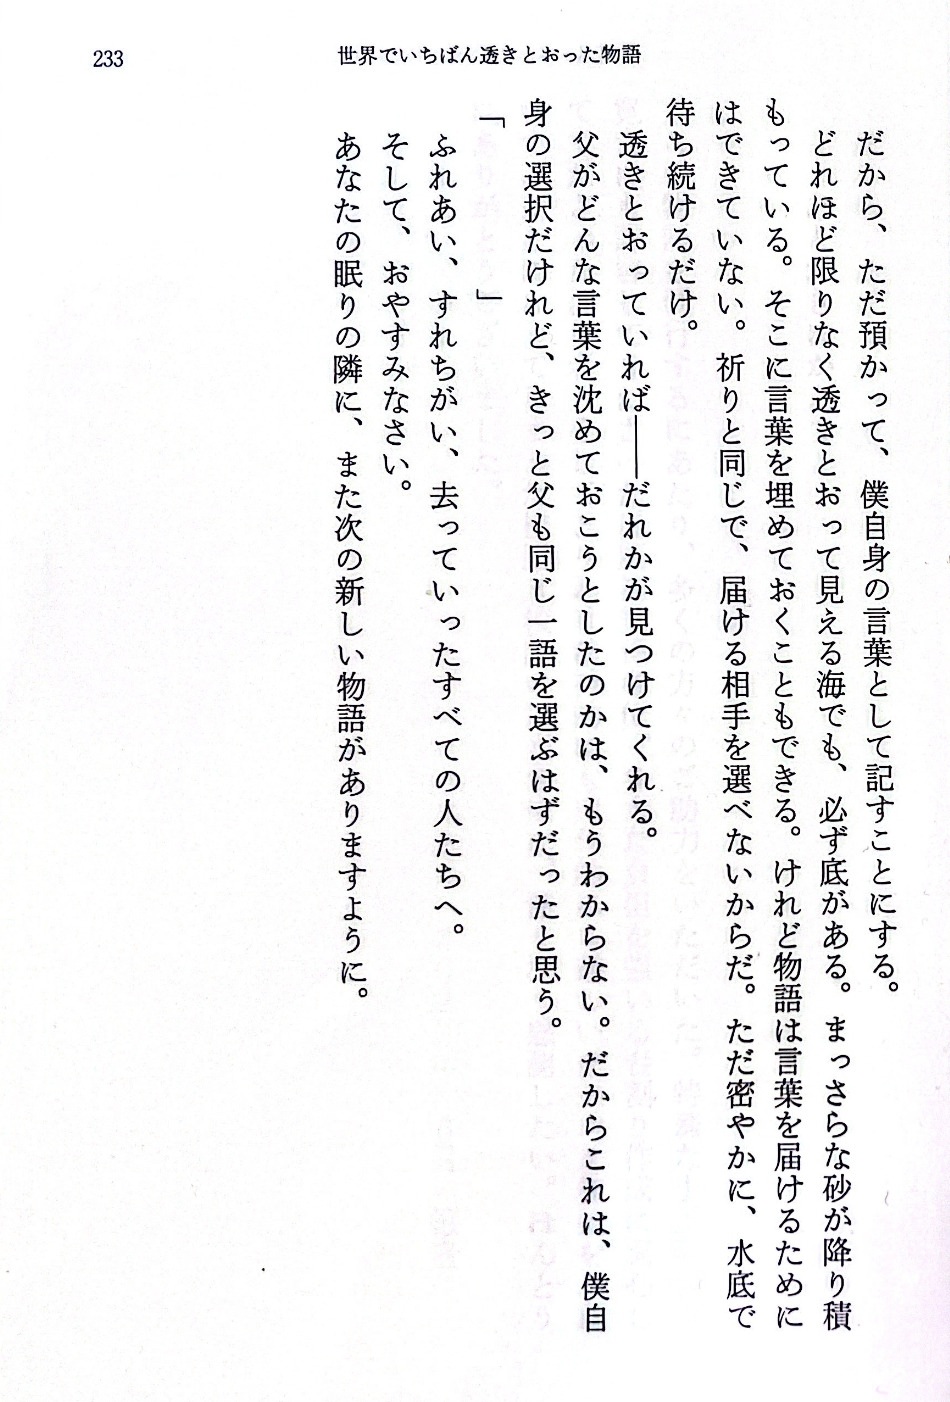 233
世界でいちばん透きとおった物語
だから、ただ預かって、僕自身の言葉として記すことにする。
どれほど限りなく透きとおって見える海でも、必ず底がある。まっさらな砂が降り積
もっている。そこに言葉を埋めておくこともできる。けれど物語は言葉を届けるために
はできていない。祈りと同じで、届ける相手を選べないからだ。ただ密やかに、水底で
待ち続けるだけ。
透きとおっていれば――だれかが見つけてくれる。
父がどんな言葉を沈めておこうとしたのかは、もうわからない。だからこれは、僕自
身の選択だけれど、きっと父も同じ一語を選ぶはずだったと思う。
「　　　　　」
ふれあい、すれちがい、去っていったすべての人たちへ。
そして、おやすみなさい。
あなたの眠りの隣に、また次の新しい物語がありますように。